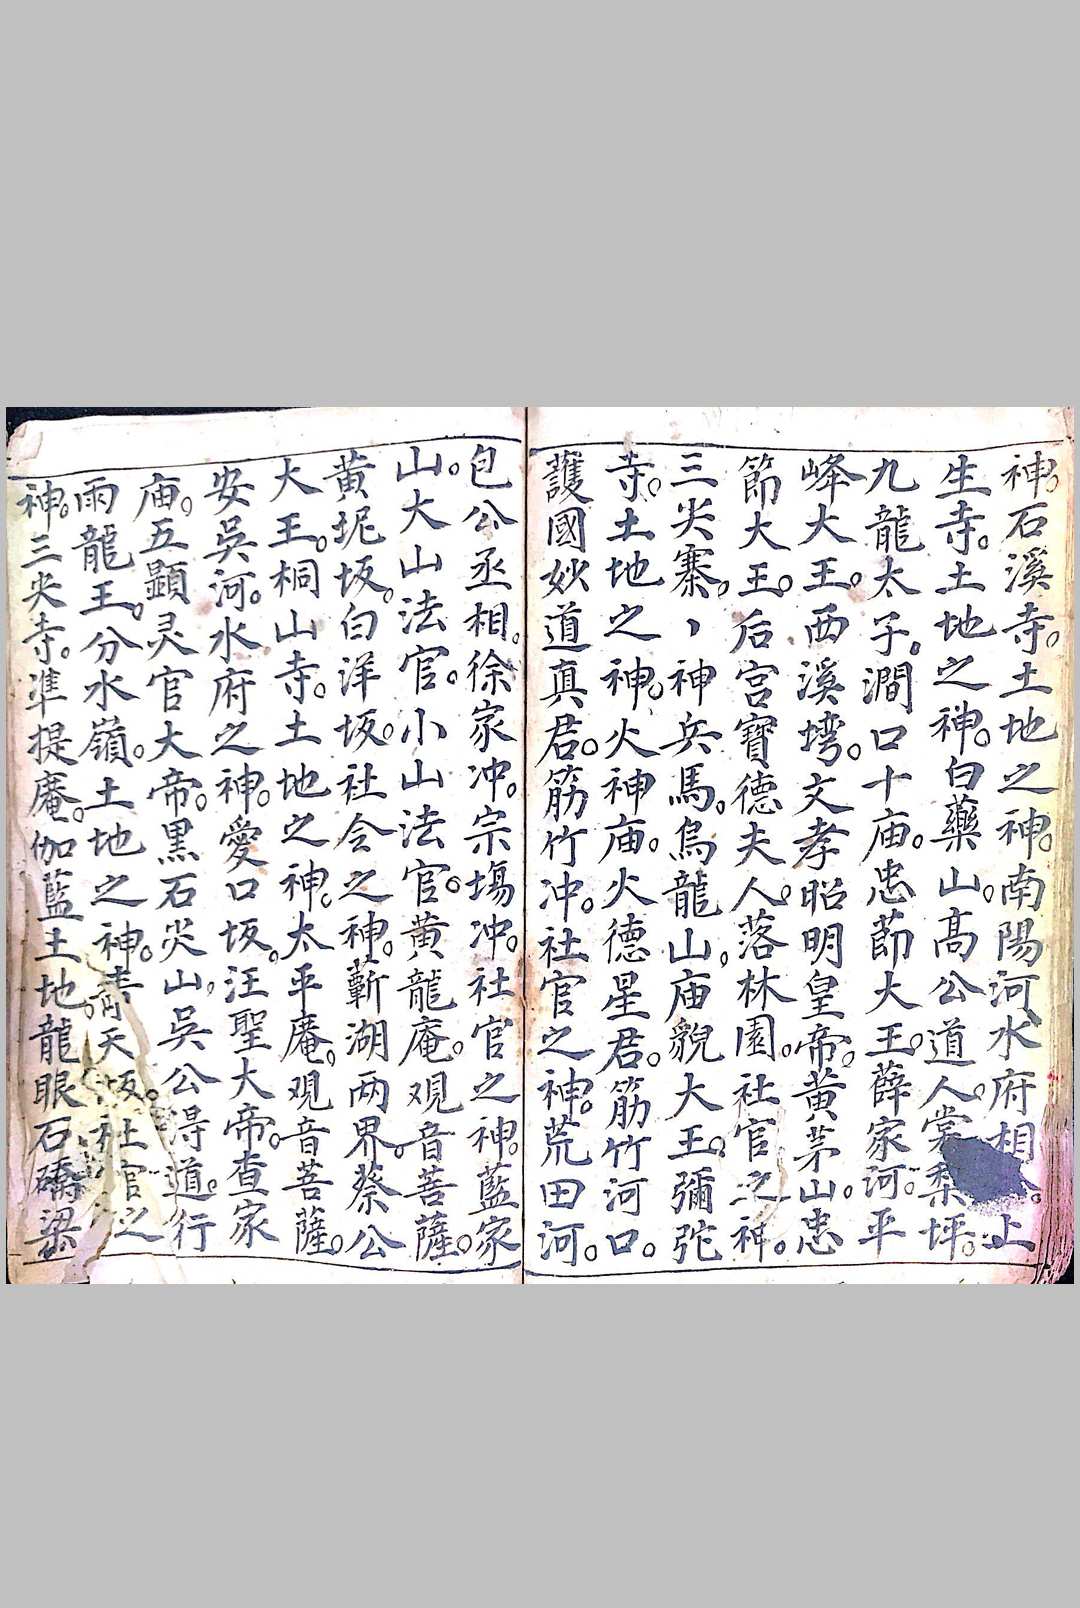 神。石溪寺。土地之神。南陽河水府相公。止
生寺。土地之神。白藥山。高公道人。棠梨坪。
九龍太子。澗口十庙。忠莭大王。薛家河。平
峰大王。西溪塆。文孝昭明皇帝。黄茅山。忠
節大王。后宫寶德夫人。落林園。社官之神。
三尖寨。丶神兵馬。烏龍山。庙貌大王。彌陀
寺。土地之神。火神庙。火德星君。筋竹河口。
護國妙道真君。筋竹冲。社官之神。荒田河。
包公丞相。徐家冲。宗塲冲。社官之神。藍家
山。大山法官。小山法官。黄龍庵。观音菩薩。
黄坭坂。白洋坂。社令之神。蕲湖两界。蔡公
大王。桐山寺。土地之神。太平庵。观音菩薩。
安吳河。水府之神。愛口坂。汪聖大帝。查家
庙。五顯灵官大帝。黑石尖山。吳公得道。行
雨龍王。分水嶺。土地之神。青天坂。社官之
神。三尖寺。準提庵。伽藍土地龍眼石礄梁